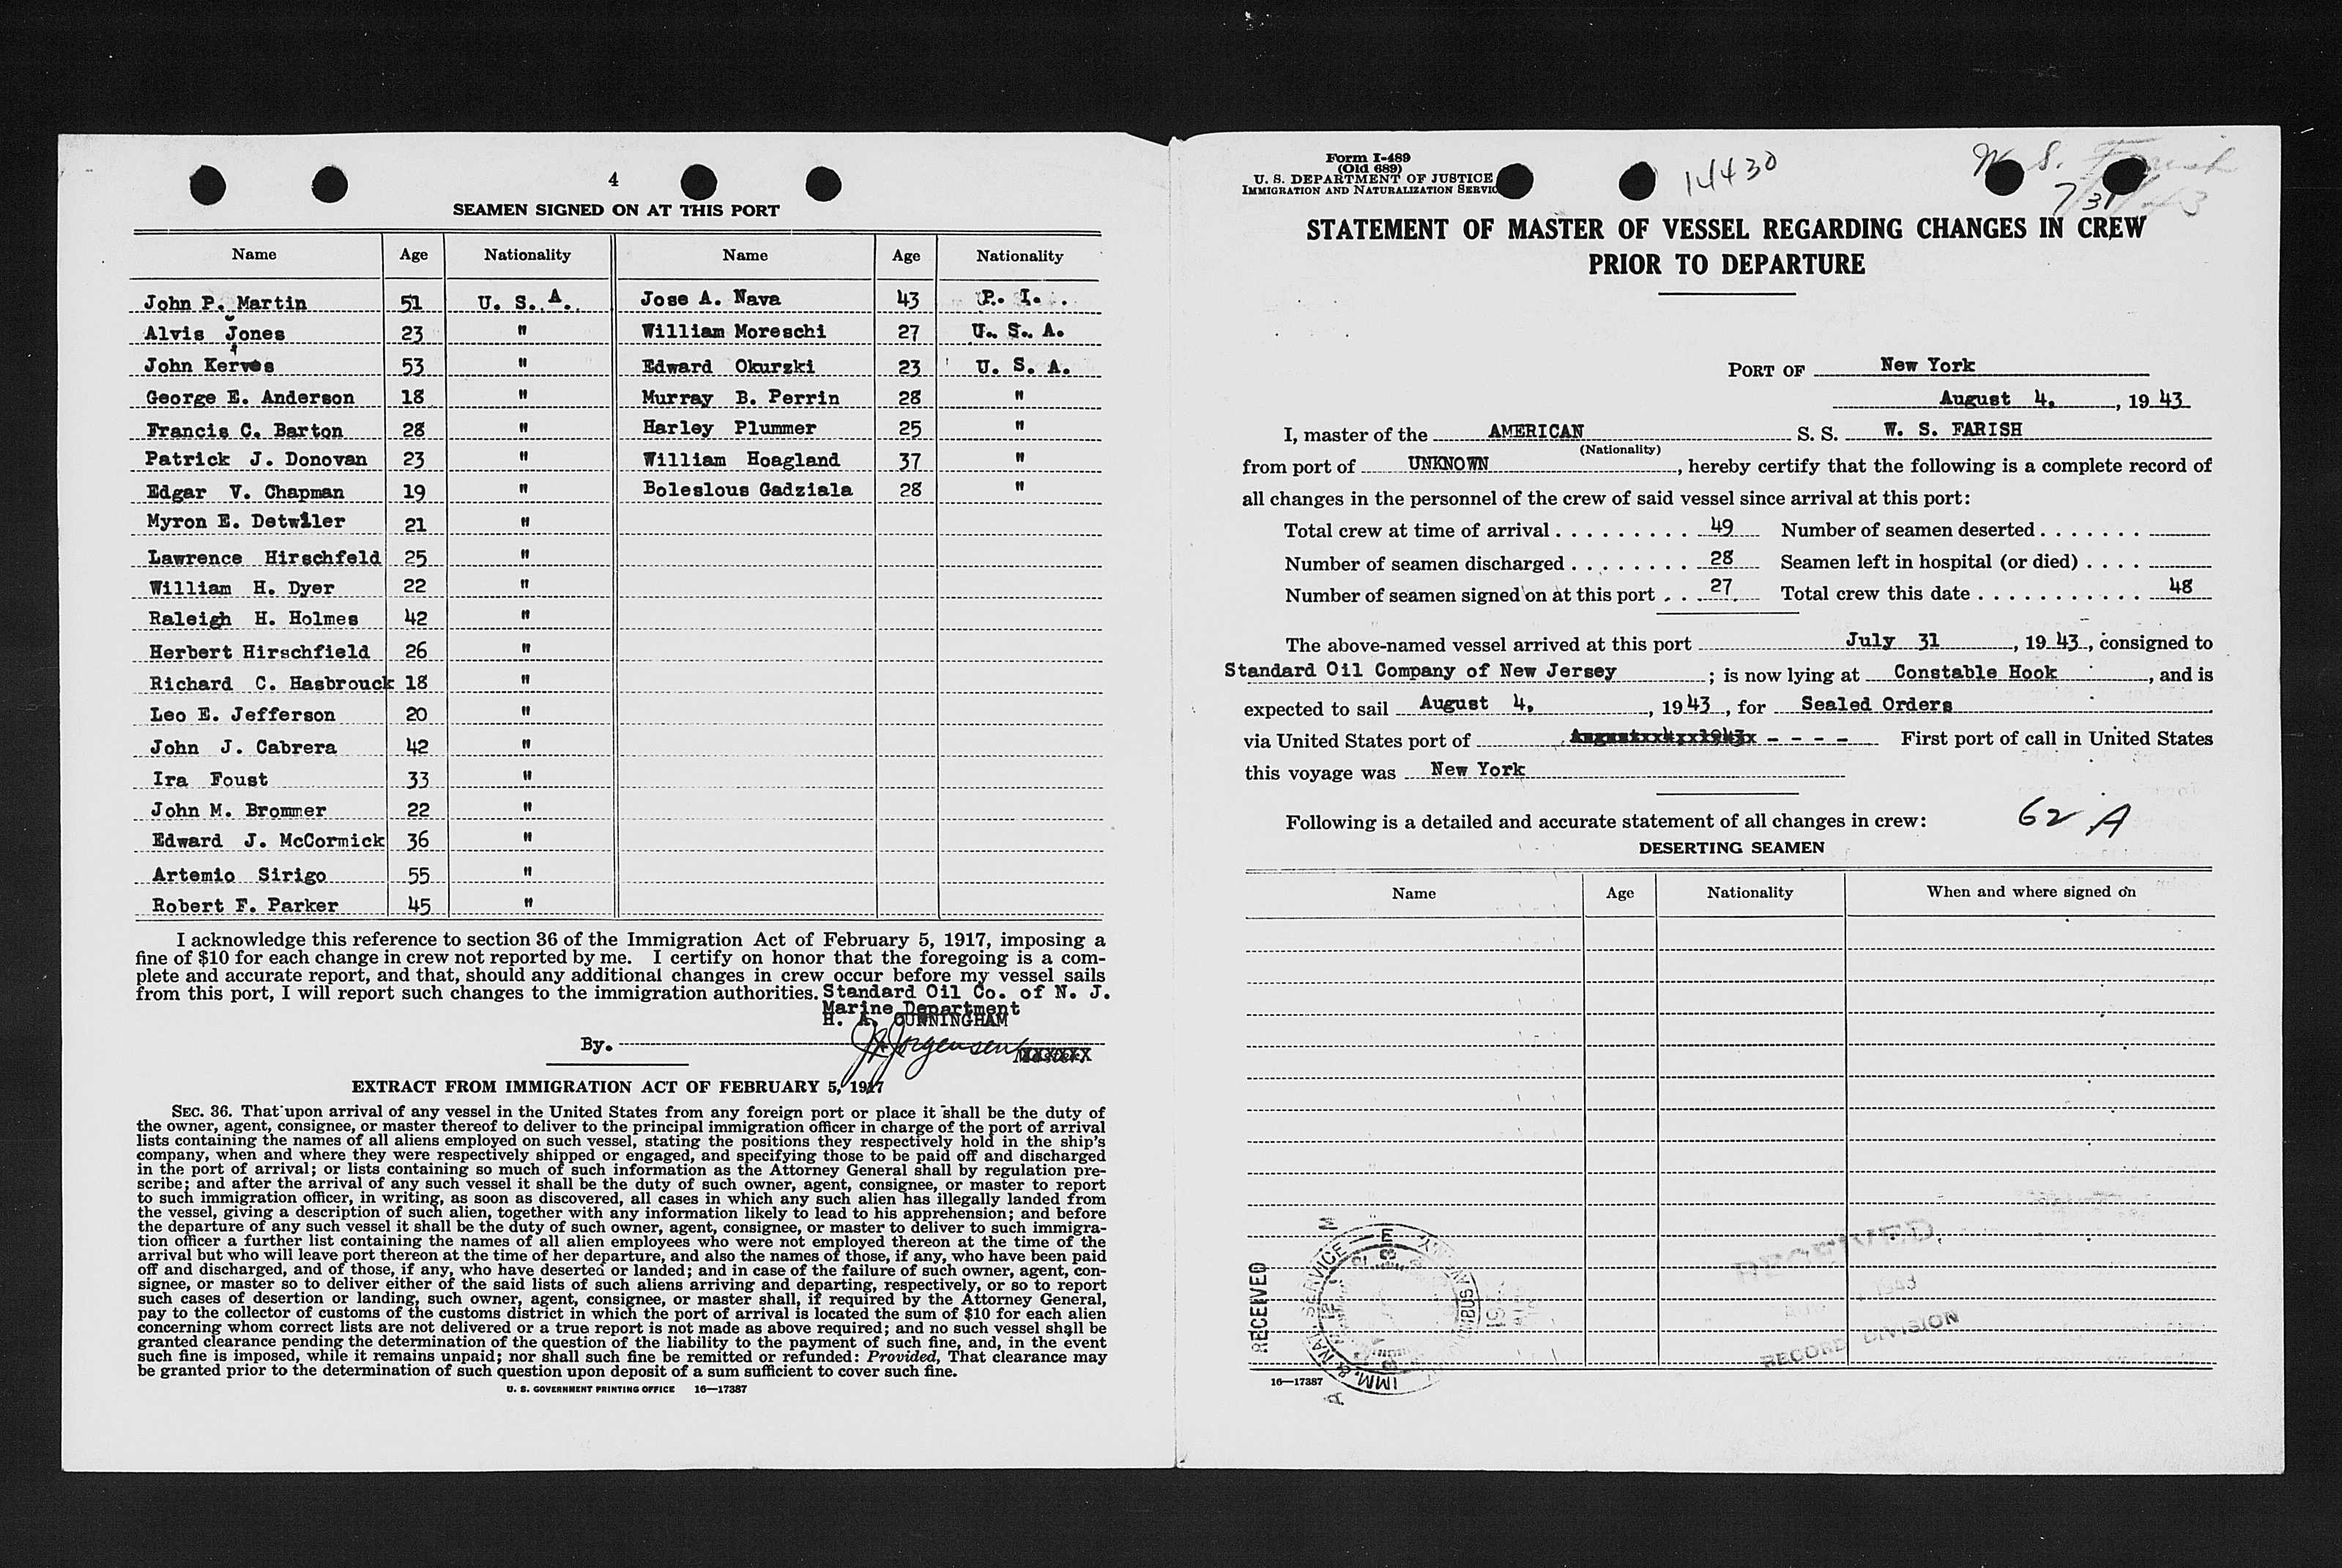 4
SEAMEN SIGNED ON AT THIS PORT
Name Age Nationality Name Age Nationality
John P. Martin 51 U. S. A. Jose A. Nava 43 P. I.
Alvis Jones 23 " William Moreschi 27 U. S. A.
John Kerves 53 " Edward Okurzki 23 U. S. A.
George E. Anderson 18 " Murray B. Perrin 28 "
Francis C. Barton 28 " Harley Plummer 25 "
Patrick J. Donovan 23 " William Hoagland 37 "
Edgar V. Chapman 19 " Boleslous Gadziala 28 "
Myron E. Detwiler 21 "
Lawrence Hirschfeld 25 "
William H. Dyer 22 "
Raleigh H. Holmes 42 "
Herbert Hirschfield 26 "
Richard C. Hasbrouck 18 "
Leo E. Jefferson 20 "
John J. Cabrera 42 "
Ira Foust 33 "
John M. Brommer 22 "
Edward J. McCormick 36 "
Artemio Sirigo 55 "
Robert F. Parker 45 "
I acknowledge this reference to section 36 of the Immigration Act of February 5, 1917, imposing a
fine of $10 for each change in crew not reported by me. I certify on honor that the foregoing is a com-
plete and accurate report, and that, should any additional changes in crew occur before my vessel sails
from this port, I will report such changes to the immigration authorities. Standard Oil Co. of N. J.
Marine Department
H. A. CUNNINGHAM
By. J Jorgensen
EXTRACT FROM IMMIGRATION ACT OF FEBRUARY 5, 1917
SEC. 36. That upon arrival of any vessel in the United States from any foreign port or place it shall be the duty of
the owner, agent, consignee, or master thereof to deliver to the principal immigration officer in charge of the port of arrival
lists containing the names of all aliens employed on such vessel, stating the positions they respectively hold in the ship's
company, when and where they were respectively shipped or engaged, and specifying those to be paid off and discharged
in the port of arrival; or lists containing so much of such information as the Attorney General shall by regulation pre-
scribe; and after the arrival of any such vessel it shall be the duty of such owner, agent, consignee, or master to report
to such immigration officer, in writing, as soon as discovered, all cases in which any such alien has illegally landed from
the vessel, giving a description of such alien, together with any information likely to lead to his apprehension; and before
the departure of any such vessel it shall be the duty of such owner, agent, consignee, or master to deliver to such immigra-
tion officer a further list containing the names of all alien employees who were not employed thereon at the time of the
arrival but who will leave port thereon at the time of her departure, and also the names of those, if any, who have been paid
off and discharged, and of those, if any, who have deserted or landed; and in case of the failure of such owner, agent, con-
signee, or master so to deliver either of the said lists of such aliens arriving and departing, respectively, or so to report
such cases of desertion or landing, such owner, agent, consignee, or master shall, if required by the Attorney General,
pay to the collector of customs of the customs district in which the port of arrival is located the sum of $10 for each alien
concerning whom correct lists are not delivered or a true report is not made as above required; and no such vessel shall be
granted clearance pending the determination of the question of the liability to the payment of such fine, and, in the event
such fine is imposed, while it remains unpaid; nor shall such fine be remitted or refunded: Provided, That clearance may
be granted prior to the determination of such question upon deposit of a sum sufficient to cover such fine.
U. S. GOVERNMENT PRINTING OFFICE 16—17387
Form I-489
(Old 689)
U. S. DEPARTMENT OF JUSTICE
IMMIGRATION AND NATURALIZATION SERVIC
14430
W. S. Farish
7/31/43
STATEMENT OF MASTER OF VESSEL REGARDING CHANGES IN CREW
PRIOR TO DEPARTURE
PORT OF New York
August 4, , 19 43
I, master of the AMERICAN S. S. W. S. FARISH
(Nationality)
from port of UNKNOWN , hereby certify that the following is a complete record of
all changes in the personnel of the crew of said vessel since arrival at this port:
Total crew at time of arrival . . . . . . . . . . 49 Number of seamen deserted . . . . . . .
Number of seamen discharged . . . . . . . . 28 Seamen left in hospital (or died) . . . .
Number of seamen signed on at this port . . . 27 Total crew this date . . . . . . . . . . . 48
The above-named vessel arrived at this port July 31 , 19 43 , consigned to
Standard Oil Company of New Jersey ; is now lying at Constable Hook , and is
expected to sail August 4, , 19 43 , for Sealed Orders
via United States port of - - - - First port of call in United States
this voyage was New York
Following is a detailed and accurate statement of all changes in crew:
62 A
DESERTING SEAMEN
Name Age Nationality When and where signed on
RECEIVED
IMM. & NAT. SERVICE
RECEIVED
1943
RECORD DIVISION
16—17387